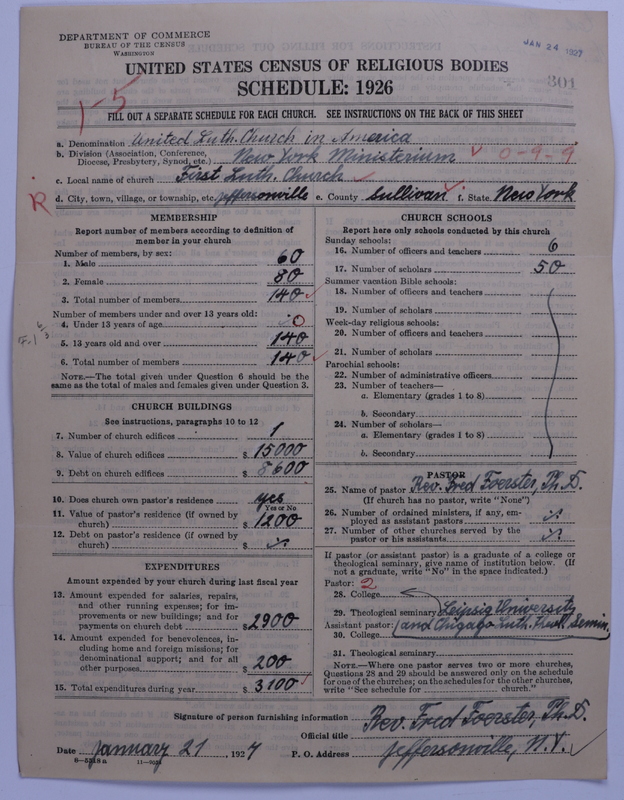 DEPARTMENT OF COMMERCE
BUREAU OF THE CENSUS
WASHINGTON
JAN 24 1927
UNITED STATES CENSUS OF RELIGIOUS BODIES
SCHEDULE: 1926
301
1-5
FILL OUT A SEPARATE SCHEDULE FOR EACH CHURCH. SEE INSTRUCTIONS ON THE BACK OF THIS SHEET
a. Denomination United Luth. Church in America
b. Division (Association, Conference, Diocese, Presbytery, Synod, etc.) New York Ministerium 0-9-9
c. Local name of church First Luth. Church
R
d. City, town, village, or township, etc. Jeffersonville e. County Sullivan f. State New York
MEMBERSHIP
Report number of members according to definition of
member in your church
Number of members, by sex:
1. Male 60
2. Female 80
3. Total number of members 140
Number of members under and over 13 years old:
4. Under 13 years of age 0
5. 13 years old and over 140
6. Total number of members 140
NOTE.—The total given under Question 6 should be the
same as the total of males and females given under Question 3.
CHURCH BUILDINGS
See instructions, paragraphs 10 to 12
7. Number of church edifices 1
8. Value of church edifices $ 15000
9. Debt on church edifices $ 8600
10. Does church own pastor's residence yes
Yes or No
11. Value of pastor's residence (if owned by
church) $ 1200
12. Debt on pastor's residence (if owned by
church) $
EXPENDITURES
Amount expended by your church during last fiscal year
13. Amount expended for salaries, repairs,
and other running expenses; for im-
provements or new buildings; and for
payments on church debt $ 2900
14. Amount expended for benevolences, in-
cluding home and foreign missions; for
denominational support; and for all
other purposes $ 200
15. Total expenditures during year $ 3100
CHURCH SCHOOLS
Report here only schools conducted by this church
Sunday schools:
16. Number of officers and teachers 6
17. Number of scholars 50
Summer vacation Bible schools:
18. Number of officers and teachers
19. Number of scholars
Week-day religious schools:
20. Number of officers and teachers
21. Number of scholars
Parochial schools:
22. Number of administrative officers
23. Number of teachers—
a. Elementary (grades 1 to 8)
b. Secondary
24. Number of scholars—
a. Elementary (grades 1 to 8)
b. Secondary
PASTOR
25. Name of pastor Rev. Fred Foerster, Ph. D.
(If church has no pastor, write "None")
26. Number of ordained ministers, if any, em-
ployed as assistant pastors
27. Number of other churches served by the
pastor or his assistants
If pastor (or assistant pastor) is a graduate of a college or
theological seminary, give name of institution below. (If
not a graduate, write "No" in the space indicated.)
Pastor: 2
28. College
29. Theological seminary Leipsig University
Assistant pastor: and Chigago Luth. Theol. Semin.
30. College
31. Theological seminary
NOTE.—Where one pastor serves two or more churches,
Questions 28 and 29 should be answered only on the schedule
for one of the churches; on the schedules for the other churches,
write "See schedule for church."
Signature of person furnishing information Rev. Fred Foerster, Ph. D.
Official title
Date January 21, 1927 P. O. Address Jeffersonville, N. Y.